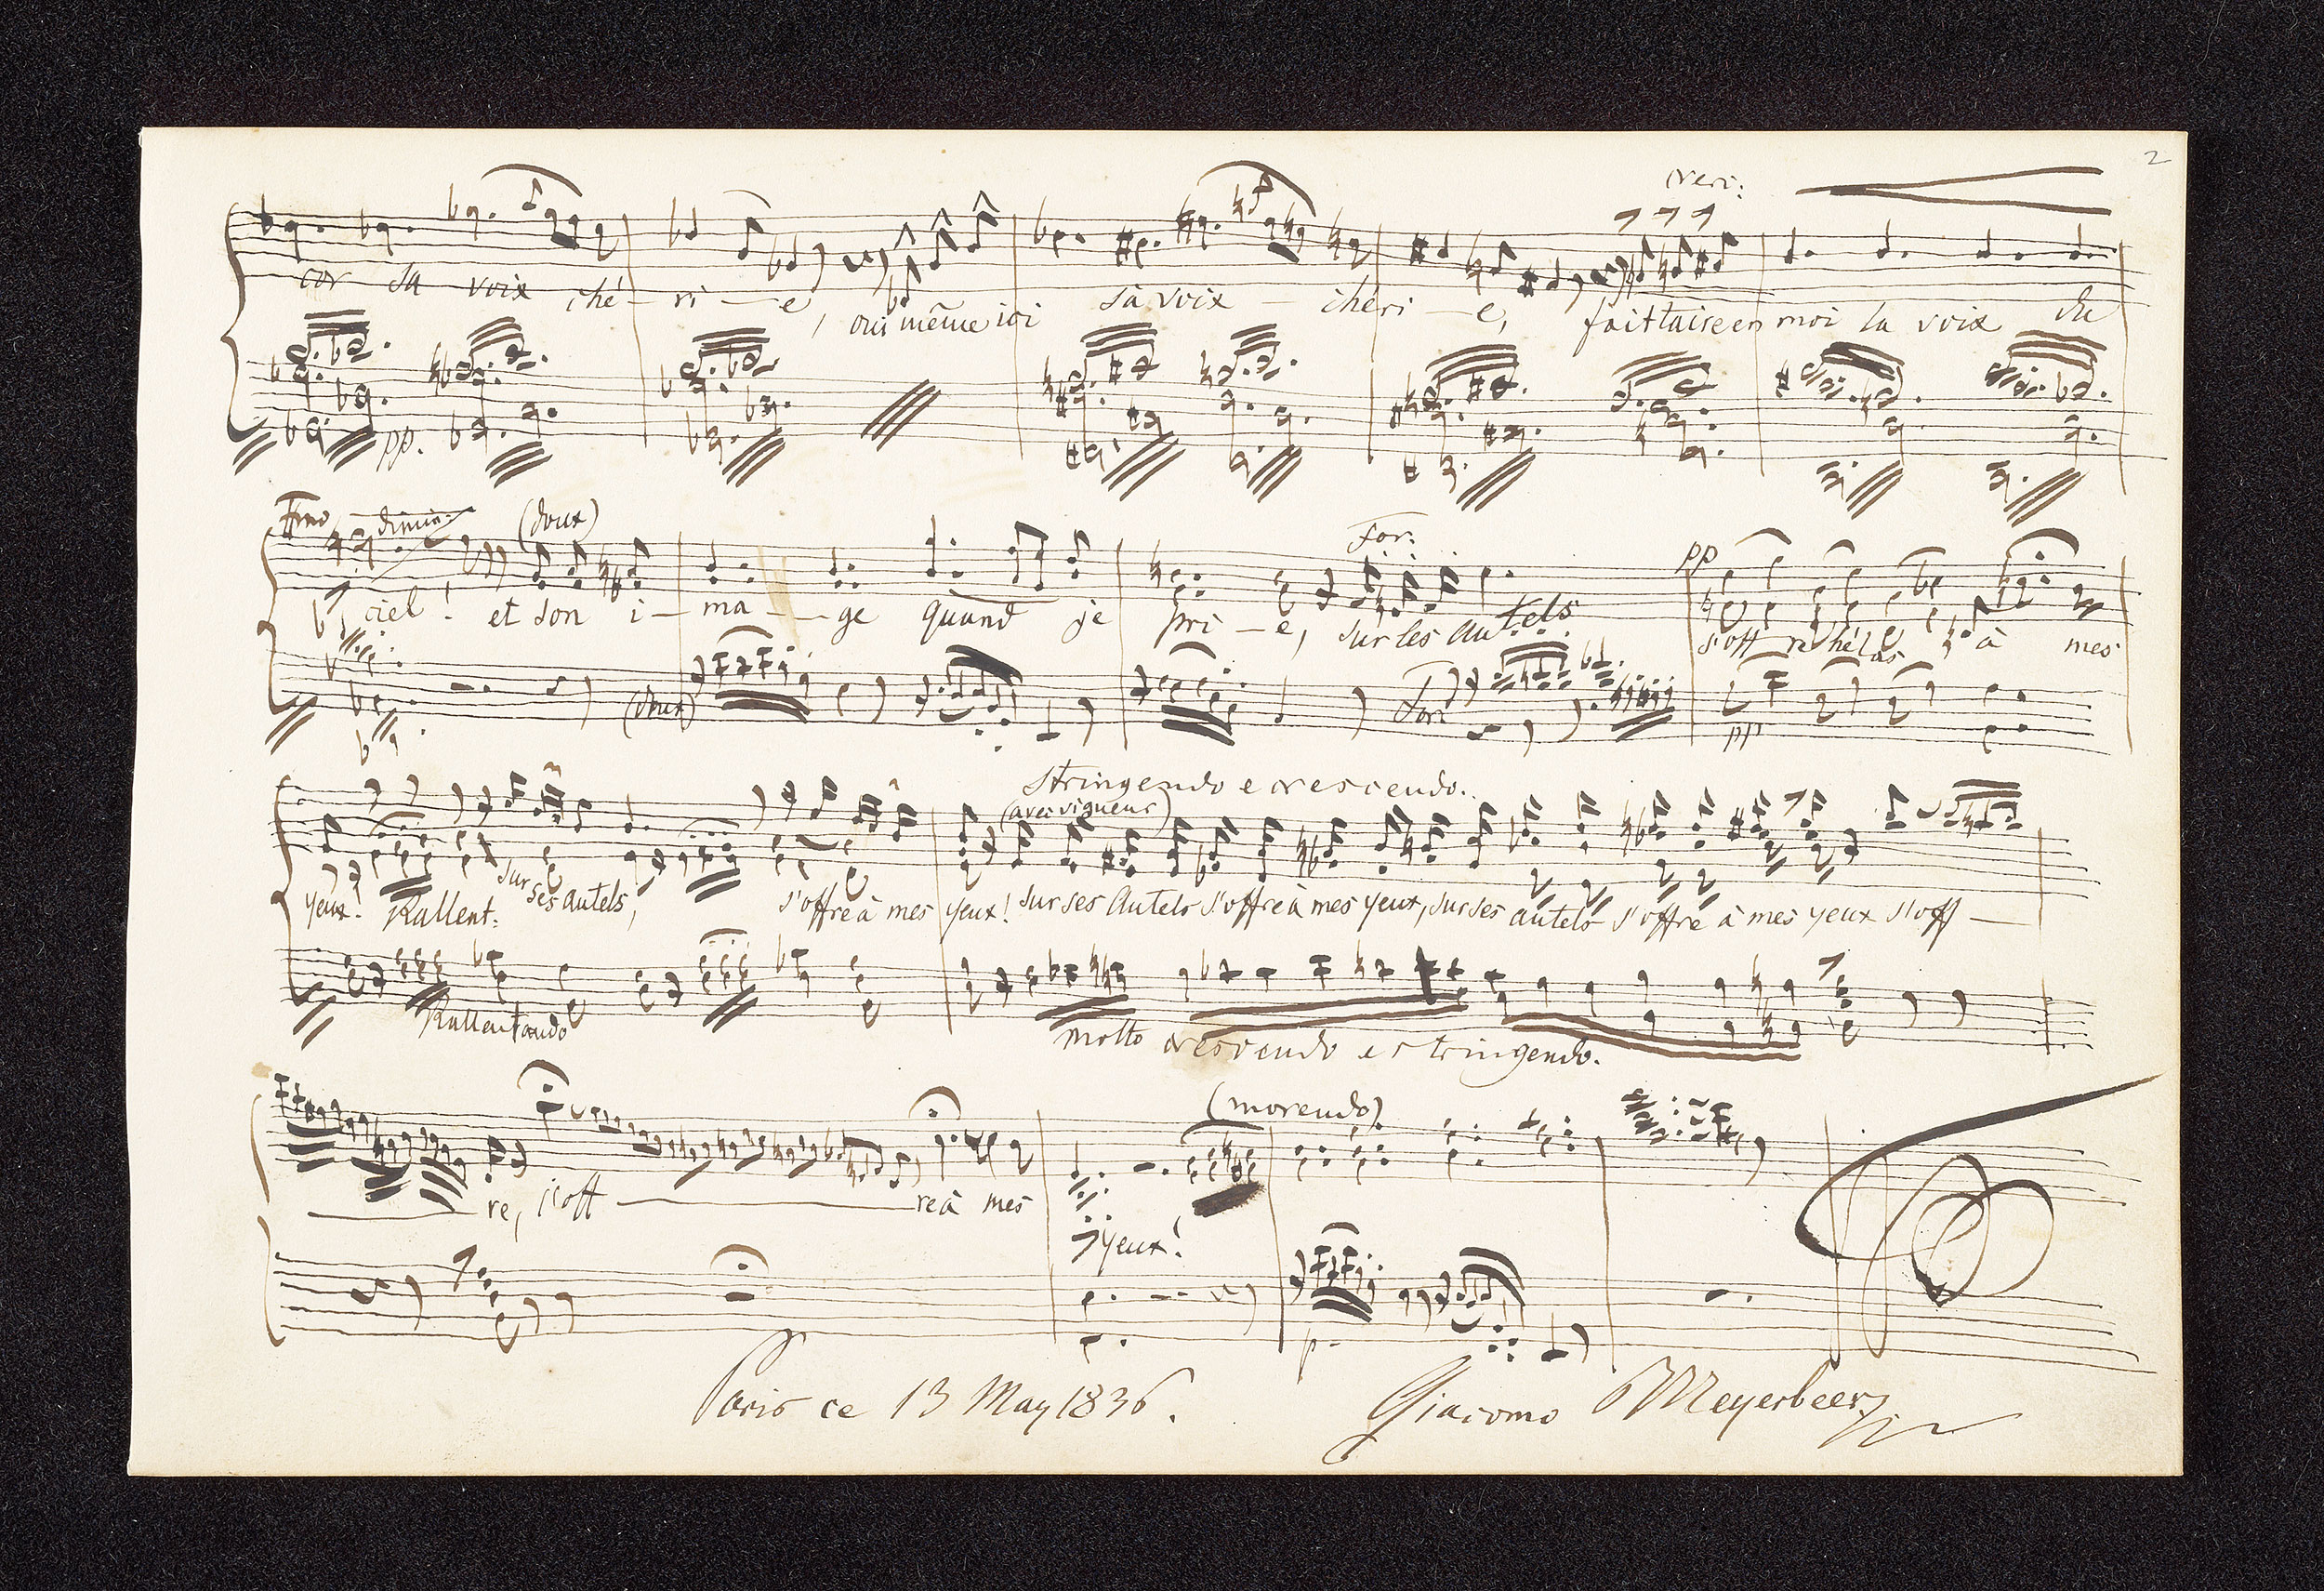 2
cresc:
cor sa voix ché - ri - e, oui même ici sa voix - chéri - e, fait taire en moi la voix du
pp.
ffmo dimin: (doux) For: pp
ciel! et son i - ma - ge quand je pri - e, sur les autels s'off re hélas à mes
(doux) For: pp
Stringendo e crescendo..
(avec vigueur)
yeux! Rallent: sur ses autels, s'offre à mes yeux! sur ses autels s'offre à mes yeux, sur ses autels s'offre à mes yeux s'off -
Rallentando molto crescendo e stringendo.
(morendo)
re, s'off re à mes yeux!
p.
Paris ce 13 May 1836. Giacomo Meyerbeer